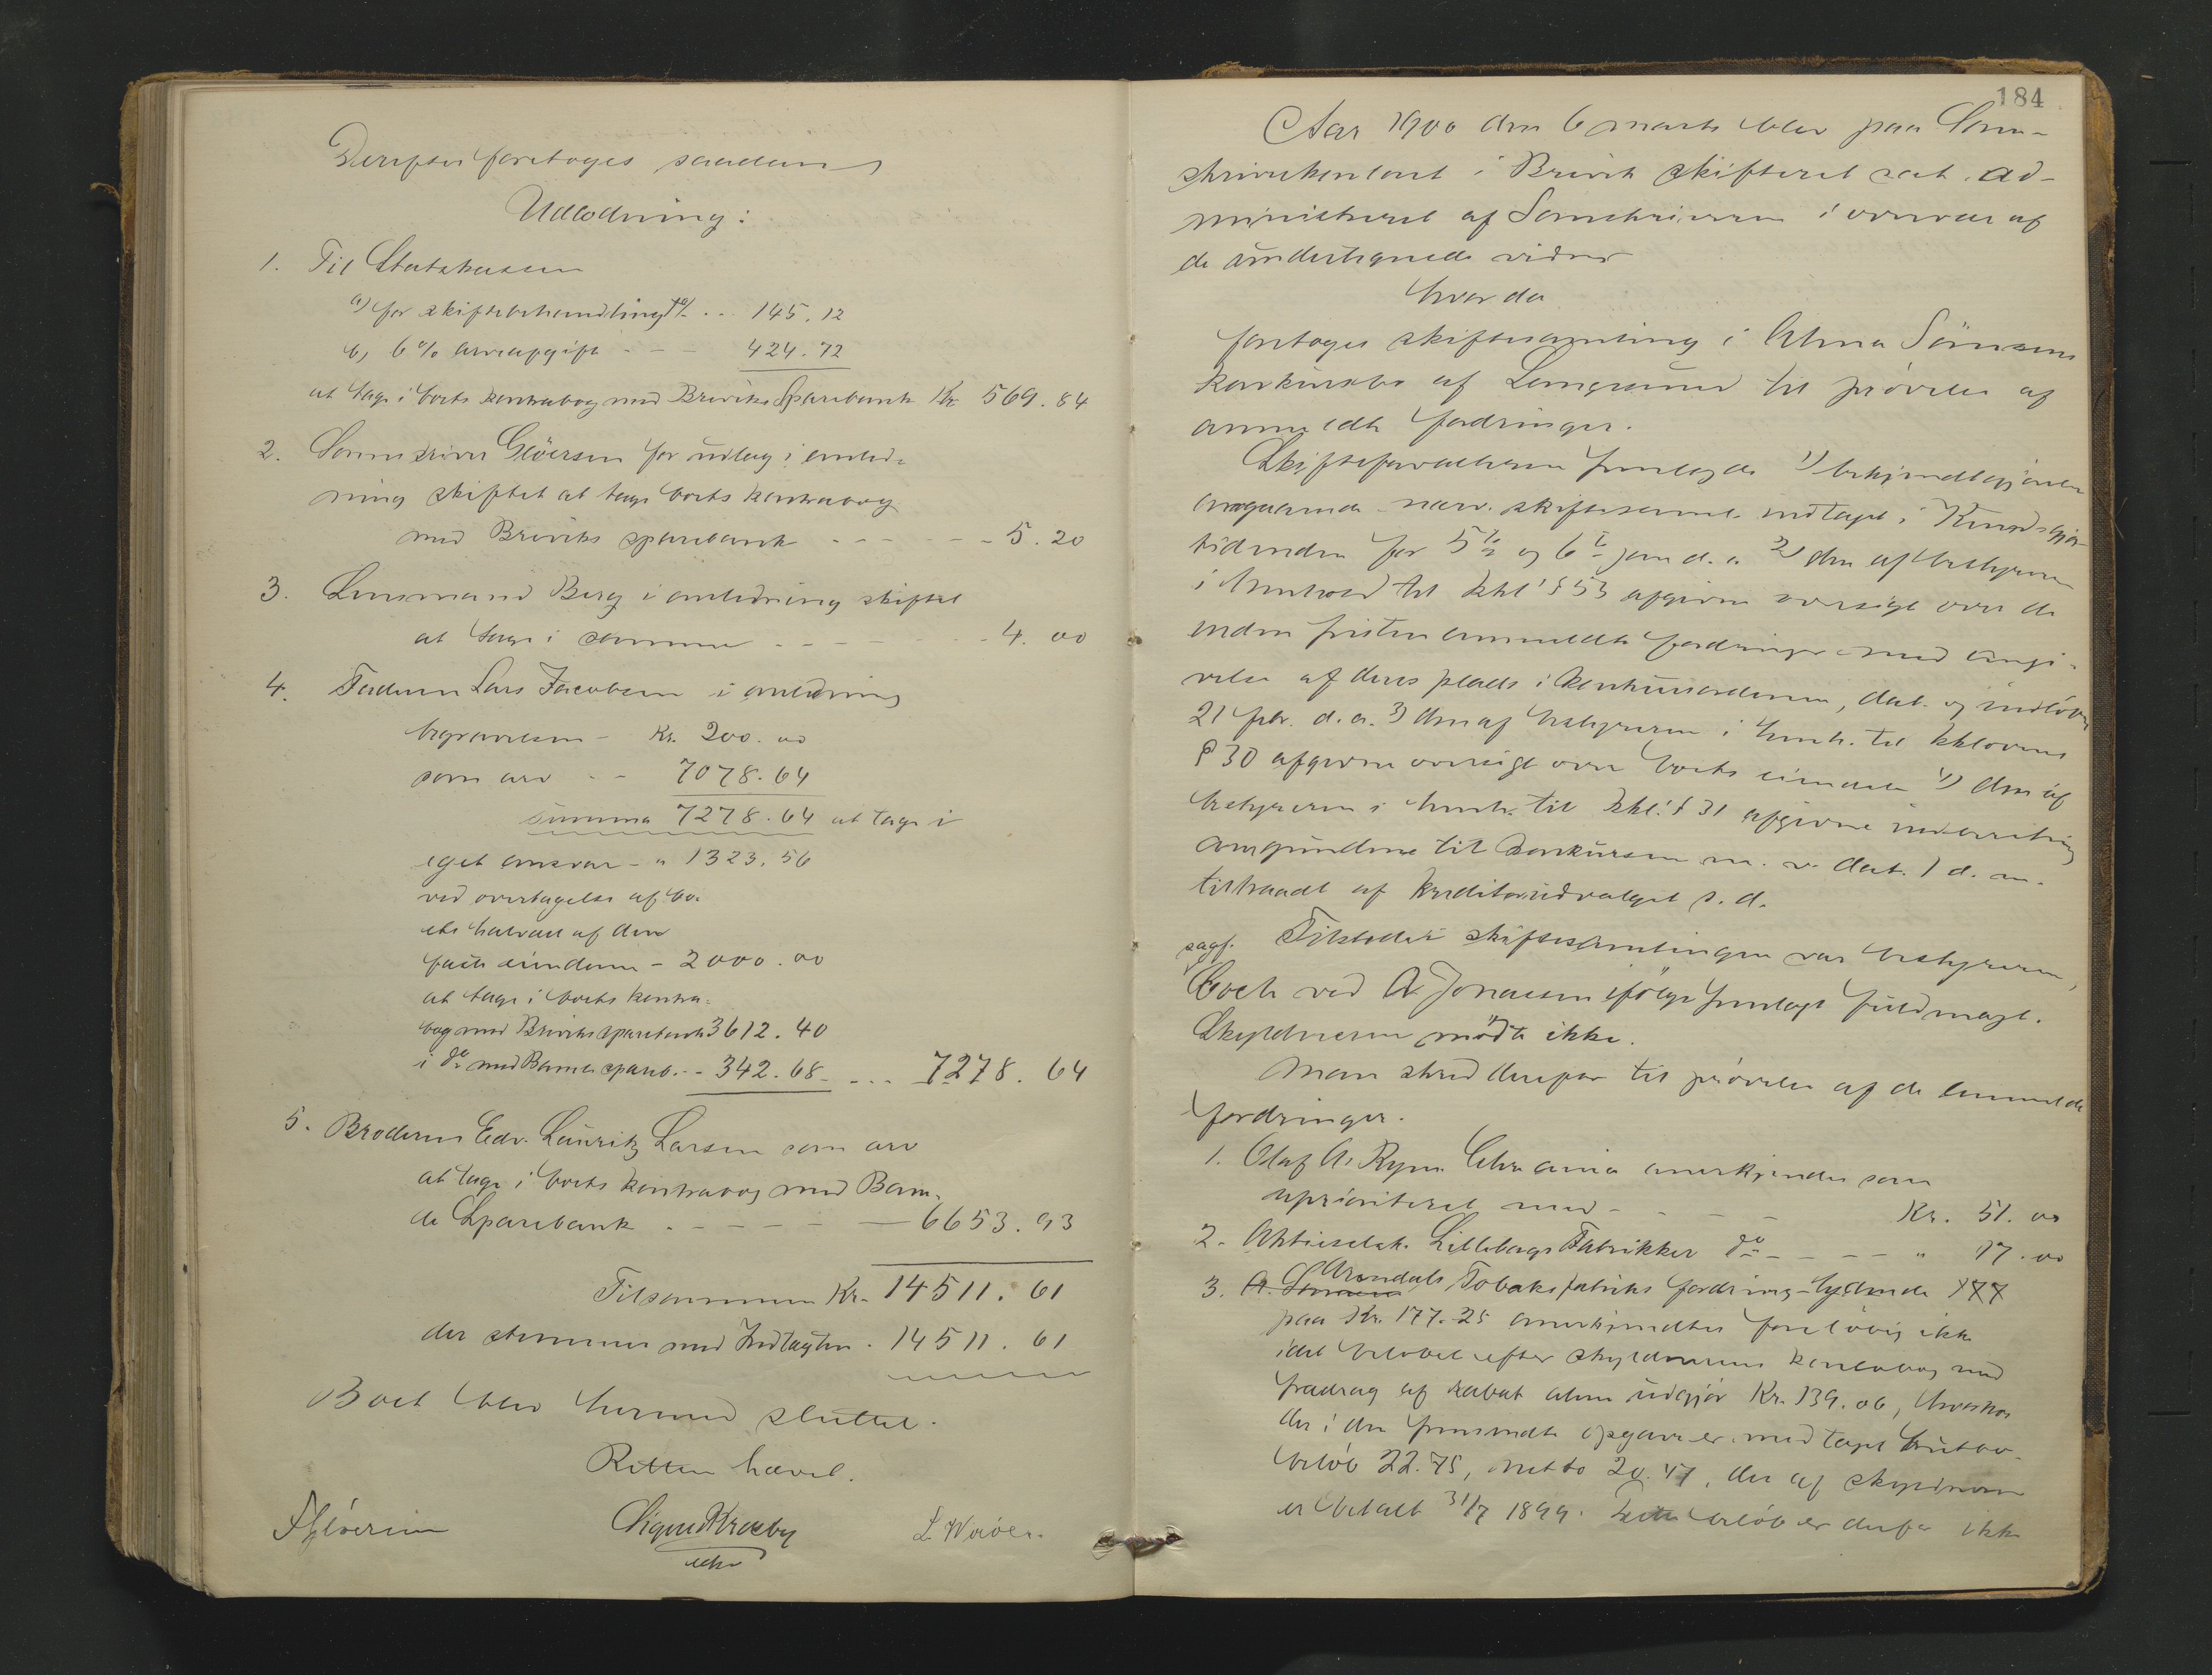 Derefter foretoges saadan
Udlodning:
1. Til Statskassen
a) for skiftebehandling .. 145.12
b, 6 % arveafgift - - - 424.72
at tage i boets kontrabog med Breviks Sparebank Kr 569.84
2. Sorenskriver Gløersen for udlæg i anled-
ning skiftet at tage boets kontrabog
med Breviks sparebank - - - - - - 5.20
3. Lensmand Berg i anledning skiftet
at tage i samme - - - - - - 4.00
4. Faderen Lars Jacobsen i anledning
begravelsen - Kr. 200.00
som arv - - 7078.64
summa 7278.64 at tage i
eget ansvar - " 1323.56
ved overtagelse af bo-
ets halvdel af den
faste eiendom - 2000.00
at tage i boets kontra-
bog med Breviks sparebank 3612.40
i do med Bamle spareb. - - 342.68 - ... 7278.64
5. Broderen Edv. Lauritz Larsen som arv
at tage i boets kontrabog med Bam-
le Sparebank - - - - - - 6653.93
Tilsammen Kr. 14511.61
der stemmer med Indtægten . 14511.61
Boet blev hermed sluttet.
Retten hævet.
Gløersen
184
Aar 1900 den 6 marts blev paa Soren-
skriverkontoret i Brevik skifteret sat ad-
ministreret af Sorenskriveren i overvær af
de undertegnede vidner
Hvor da
foretoges skiftesamling i Alma Sørensens
konkursbo af Langesund til prøvelse af
anmeldte fordringer.
Skifteforvalteren fremlagde 1) bekjendtgjørelse
angaaende nærv. skiftesaml. indtaget i Kundgjør.
tidenden for 5te og 6te jan d.a. 2) den af bestyreren
i henhold til kkl's § 53 afgivne oversigt over de
inden fristen anmeldte fordringer med angi-
velse af deres plads i konkursordenen, dat. og indløben
21 febr. d.a. 3) den af bestyreren i henh. til kklovens
§ 30 afgivne oversigt over boets eiendele 4) den af
bestyreren i henh. til kkl.'s § 31 afgivne indberetning
om grundene til konkursen m. v. dat. 1 d. m.
tiltraadt af kreditorudvalget s. d.
Tilstede i skiftesamlingen var bestyreren,
sagf. Coch ved A. Jonassen ifølge fremlagt fuldmagt.
Skyldneren mødte ikke.
Man skred derefter til prøvelse af de anmeldte
fordringer.
1. Olaf A. Ryen Chr.ania anerkjendes som
uprioriteret med - - - - Kr. 51.00
2. Aktieselsk. Lilleborgs Fabrikker do - - - - " 17.00
3. Arendals Tobaksfabriks fordring lydende
paa Kr. 177.25 anerkjendtes foreløbig ikke
idet beløbet efter skyldnerens kontobog med
fradrag af rabat alene udgjør Kr. 139.06, hvorhos
der i den fremsendte opgave er medtaget brutto-
beløb 22.75, netto 20.47, der af skyldneren
er betalt 31/7 1899. Dette beløb er derfor ikke